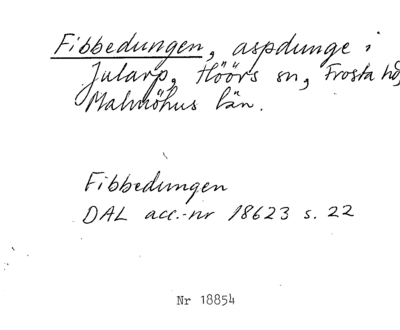 Fibbedungen, aspdunge i
Jularp, Höörs sn, Frosta hd,
Malmöhus län.
Fibbedungen
DAL acc.-nr 18623 s. 22
Nr 18854